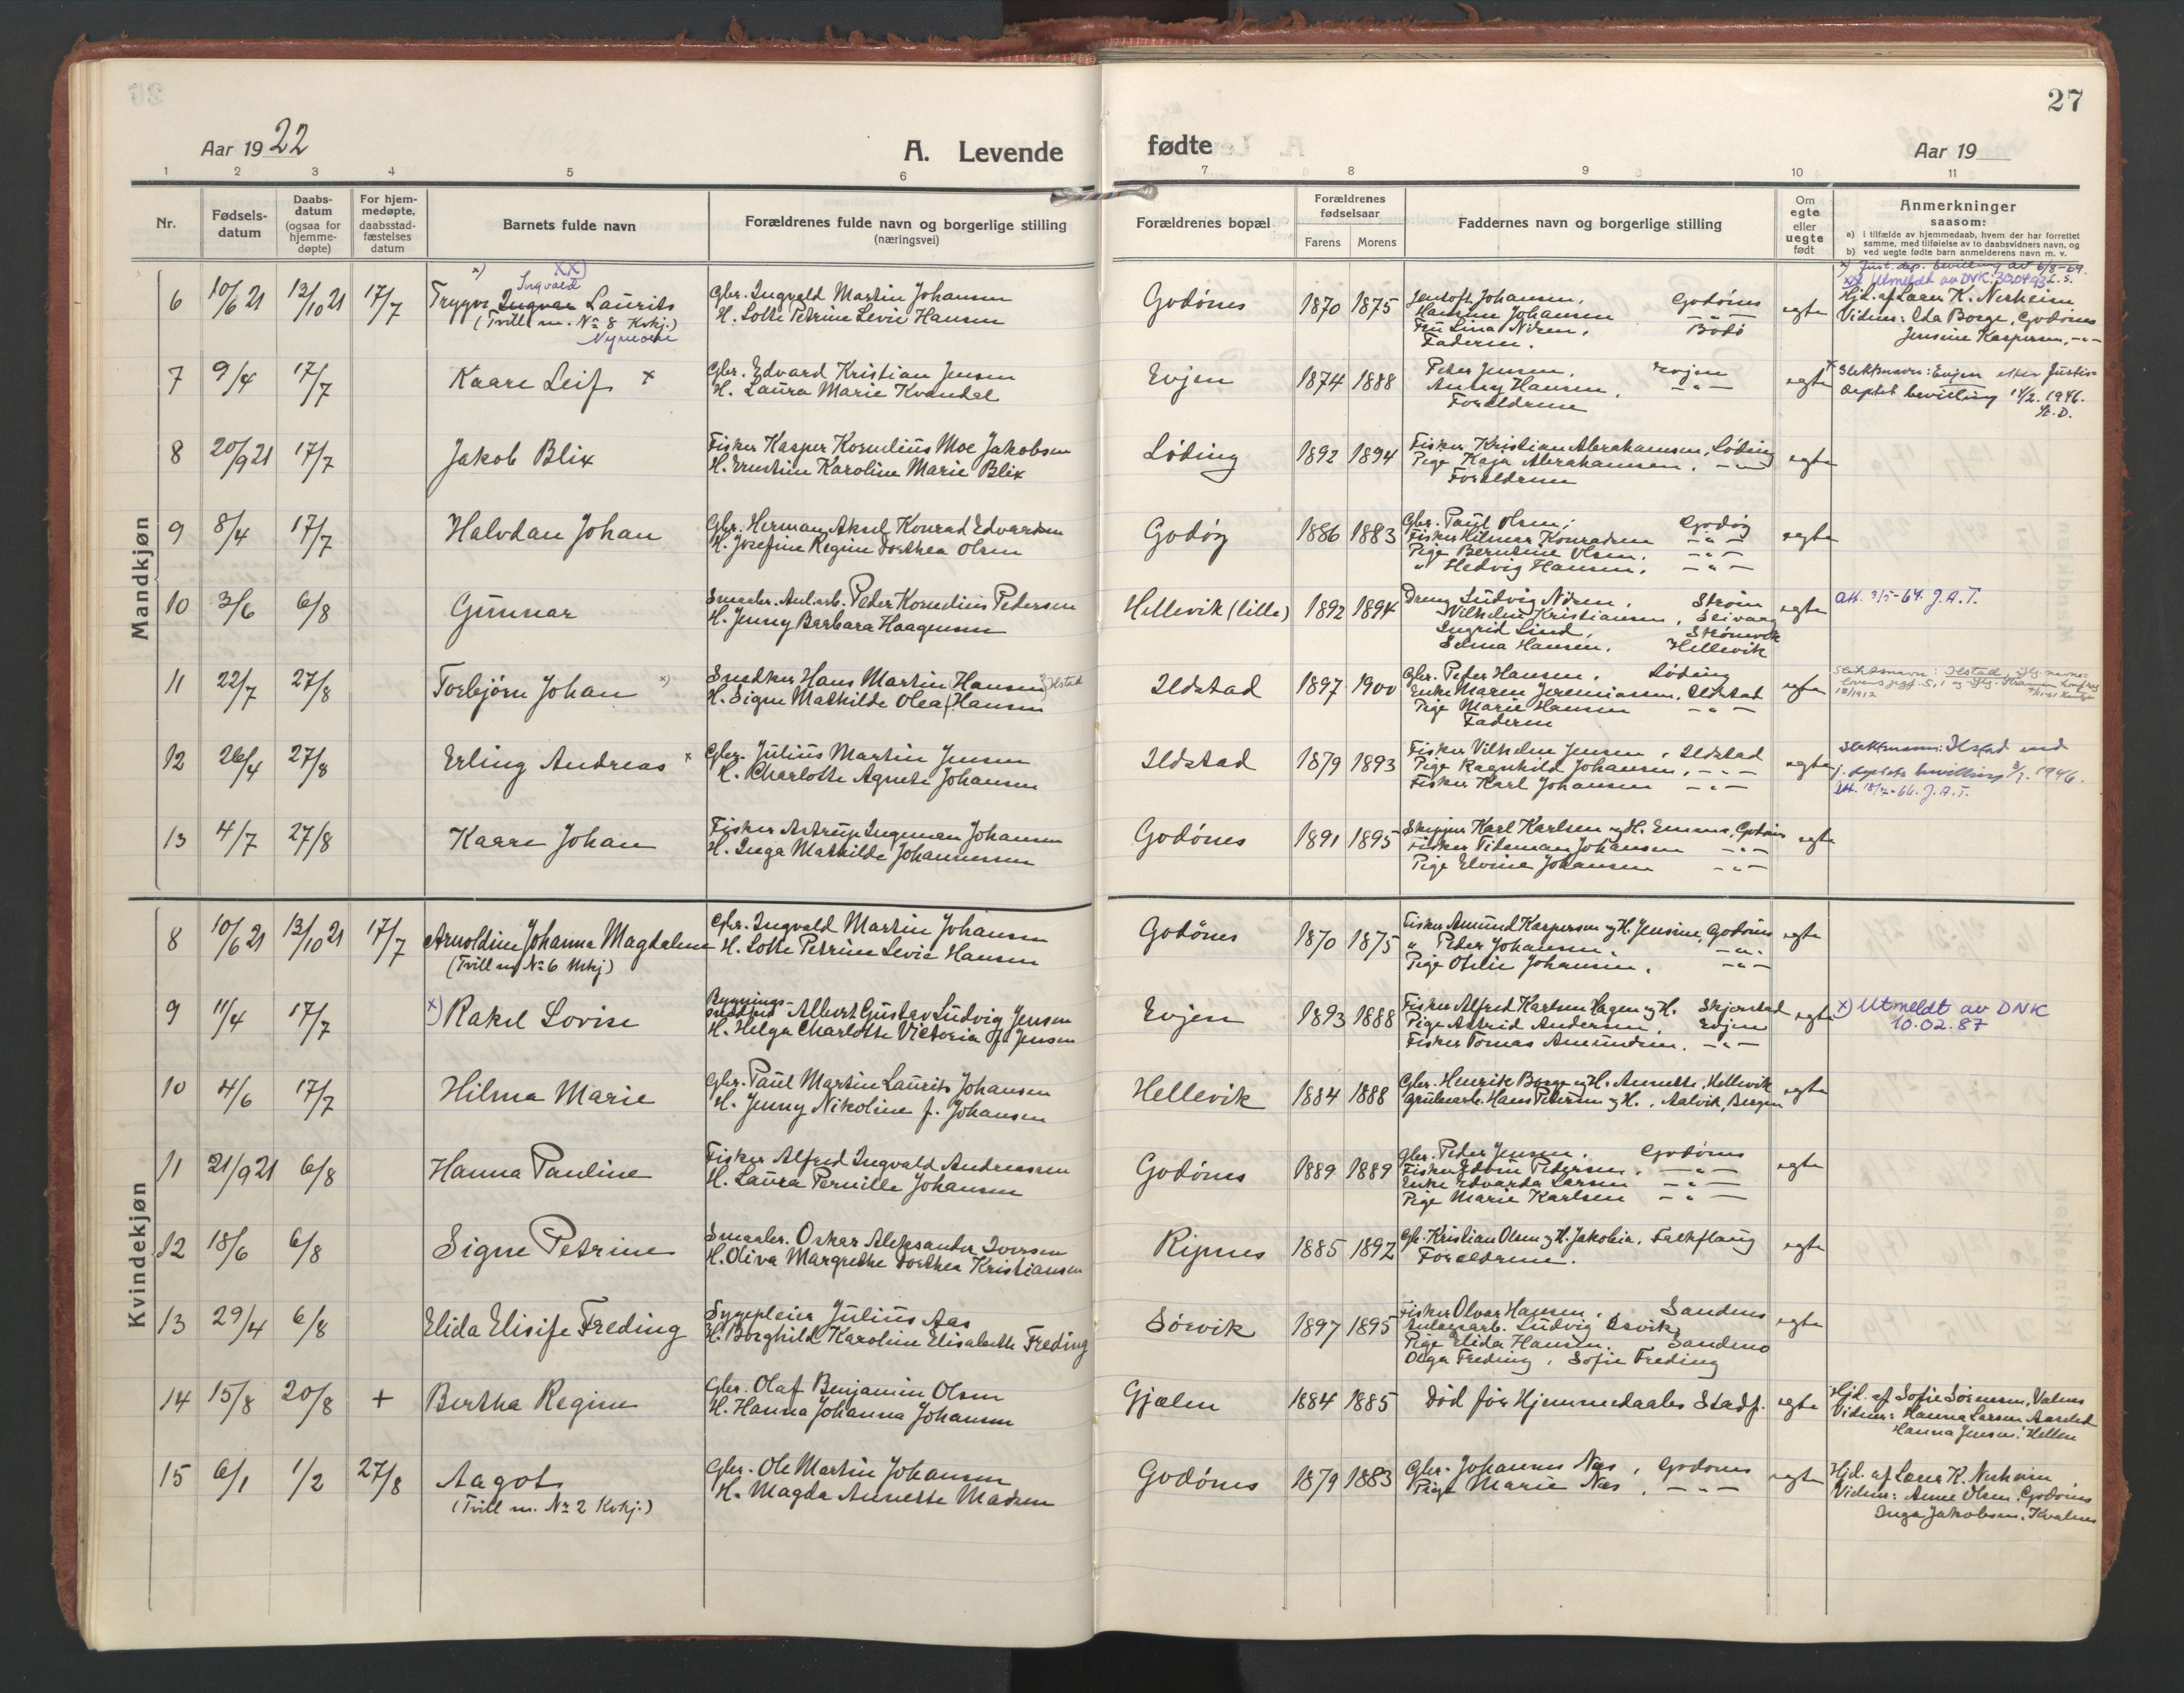 27
Aar 1922
A. Levende
fødte
Aar 19
1 2 3 4 5 6 7 8 9 10 11
Nr.
Fødsels-
datum
Daabs-
datum
(ogsaa for
hjemme-
døpte)
For hjem-
medøpte,
daabsstad-
fæstelses
datum
Barnets fulde navn
Forældrenes fulde navn og borgerlige stilling
(næringsvei)
Forældrenes bopæl
Forældrenes
fødselsaar
Farens Morens
Faddernes navn og borgerlige stilling
Om
egte
eller
uegte
født
Anmerkninger
saasom:
a) i tilfælde av hjemmedaab, hvem der har forrettet
samme, med tilføielse av to daabsvidners navn, og
b) ved uegte fødte barn anmelderens navn m. v.
Mandkjøn
6 10/6 21 13/10 21 17/7
x) Ingvald xx)
Trygve Ingvar Laurits
(Tvill m. No 8 Kvkj.)
Gbr. Ingvald Martin Johansen
H. Lotte Petrine Levie Hansen
Godønes 1870 1875
Jentoft Johansen, Godønes
Hansine Johansen — " —
Fru Lina Nilsen, Bodø
Faderen.
egte
x) Just. dep. bevilling av 6/8-29.
xx) Utmeldt av DNK.
Hjd. af Laura K. Nesheim
Vidner: Ida Borge, Godønes
Jensine Kaspersen, - " -
7 9/4 17/7 Kaare Leif x
Gbr. Edvard Kristian Jensen
H. Laura Marie Kvandal
Evjen 1874 1888
Peter Jensen, Evjen
Anny Hansen, — " —
Forældrene
egte
x Slektsnavn: Evjen etter Justis-
deptet bevilling 14/2. 1946.
8 20/9 21 17/7 Jakob Blix
Fisker Kasper Kornelius Moe Jakobsen
H. Ernstine Karoline Marie Blix
Løding 1892 1894
Fisker Kristian Abrahamsen, Løding
Pige Kaja Abrahamsen, — " —
Forældrene
egte
9 8/4 17/7 Halvdan Johan
Gbr. Herman Aksel Konrad Edvardsen
H. Josefine Regine Dorthea Olsen
Godøy 1886 1883
Gbr. Paul Olsen, Godøy
Fisker Hilmar Konradsen — " —
Pige Berntine Olsen, — " —
" Hedvig Hansen, — " —
egte
10 3/6 6/8 Gunnar
Smaabr. Anl.arb. Peder Kornelius Pedersen
H. Jenny Barbara Haagensen
Hellevik (lille) 1892 1894
Dreng Ludvig Nilsen, Strøm
Vilhelm Kristiansen, Seivaag
Ingrid Lind, Strømvik
Selma Hansen, Hellevik
egte
Att. 3/5-64. J.A.T.
11 22/7 27/8 Torbjørn Johan x)
Snedker Hans Martin Hansen } Ilstad
H. Signe Mathilde Olea Hansen
Ildstad 1897 1900
Gbr. Peder Hansen, Løding
Enke Maren Jeremiassen, Ildstad
Pige Marie Hansen — " —
Faderen
egte
12 26/4 27/8 Erling Andreas x
Gbr. Julius Martin Jensen
H. Charlotte Agnete Johansen
Ildstad 1879 1893
Fisker Vilhelm Jensen, Ildstad
Pige Ragnhild Johansen, — " —
Fisker Karl Johansen — " —
egte
Slektsnavn: Ilstad ved
j. deptets bevilling 3/7. 1946.
Att. 18/7-66. J.A.T.
13 4/7 27/8 Kaare Johan
Fisker Astrup Ingeman Johansen
H. Inga Mathilde Johannessen
Godønes 1891 1895
Skipper Karl Karlsen og H. Emma, Godønes
Fisker Tideman Johansen — " —
Pige Elvine Johansen — " —
egte
Kvindekjøn
8 10/6 21 13/10 21 17/7 Arnoldine Johanna Magdalene
(Tvill m. No 6 Mkj)
Gbr. Ingvald Martin Johansen
H. Lotte Petrine Levie Hansen
Godønes 1870 1875
Fisker Amund Kaspersen og H. Jensine, Godønes
" Peder Johansen, — " —
Pige Otelie Johansen, — " —
egte
9 11/4 17/7 x) Rakel Lovise
Bygnings-
snedker Albert Gustav Ludvig Jensen
H. Helga Charlotte Victoria f. Jensen
Evjen 1893 1888
Fisker Alfred Karlsen Hagen og H. Skjerstad
Pige Astrid Andersen, Evjen
Fisker Tomas Amundsen, — " —
egte
x) Utmeldt av DNK
10.02.87
10 4/6 17/7 Hilma Marie
Gbr. Paul Martin Laurits Johansen
H. Jenny Nikoline f. Johansen
Hellevik 1884 1888
Gbr. Henrik Borge og H. Annette, Hellevik
Grubearb. Hans Petersen og H., Aalvik, Bergen
egte
11 21/9 21 6/8 Hanna Pauline
Fisker Alfred Ingvald Andreassen
H. Laura Pernille Johansen
Godønes 1889 1889
Gbr. Peder Jensen, Godønes
Fisker Edvin Pedersen, — " —
Enke Edvarda Larsen — " —
Pige Marie Karlsen — " —
egte
12 18/6 6/8 Signe Petrine
Smaabr. Oskar Aleksander Iversen
H. Oliva Margrethe Dorthea Kristiansen
Ripnes 1885 1892
Gbr. Kristian Olsen og H. Jakobia, Falkflaug
Forældrene.
egte
13 29/4 6/8 Elida Elisife Freding
Sygepleier Julius Aas
H. Borghild Karoline Elisabeth Freding
Sørvik 1897 1895
Fisker Olvar Hansen, Sandnes
Anlægsarb. Ludvig Osvik,
Pige Elida Hansen, Sandmo
Olga Freding, Sofie Freding
egte
14 15/8 20/8 + Bertha Regine
Gbr. Olaf Benjamin Olsen
H. Hanna Johanna Johansen
Gjælen 1884 1885
Død før Hjemmedaabs Stadf.
egte
Hjd. af Sofie Sørensen, Valnes
Vidner: Hanna Larsen
Hanna Jensen, Hellen
15 6/1 1/2 27/8 Aagot
(Tvill m. No 2 Kvkj.)
Gbr. Ole Martin Johansen
H. Magda Annette Madsen
Godønes 1879 1883
Gbr. Johannes Næs, Godønes
Pige Marie Næs, — " —
egte
Hjd. af Laura K. Nesheim
Vidner: Anne Olsen, Godønes
Inga Jakobsen, Kvalnes